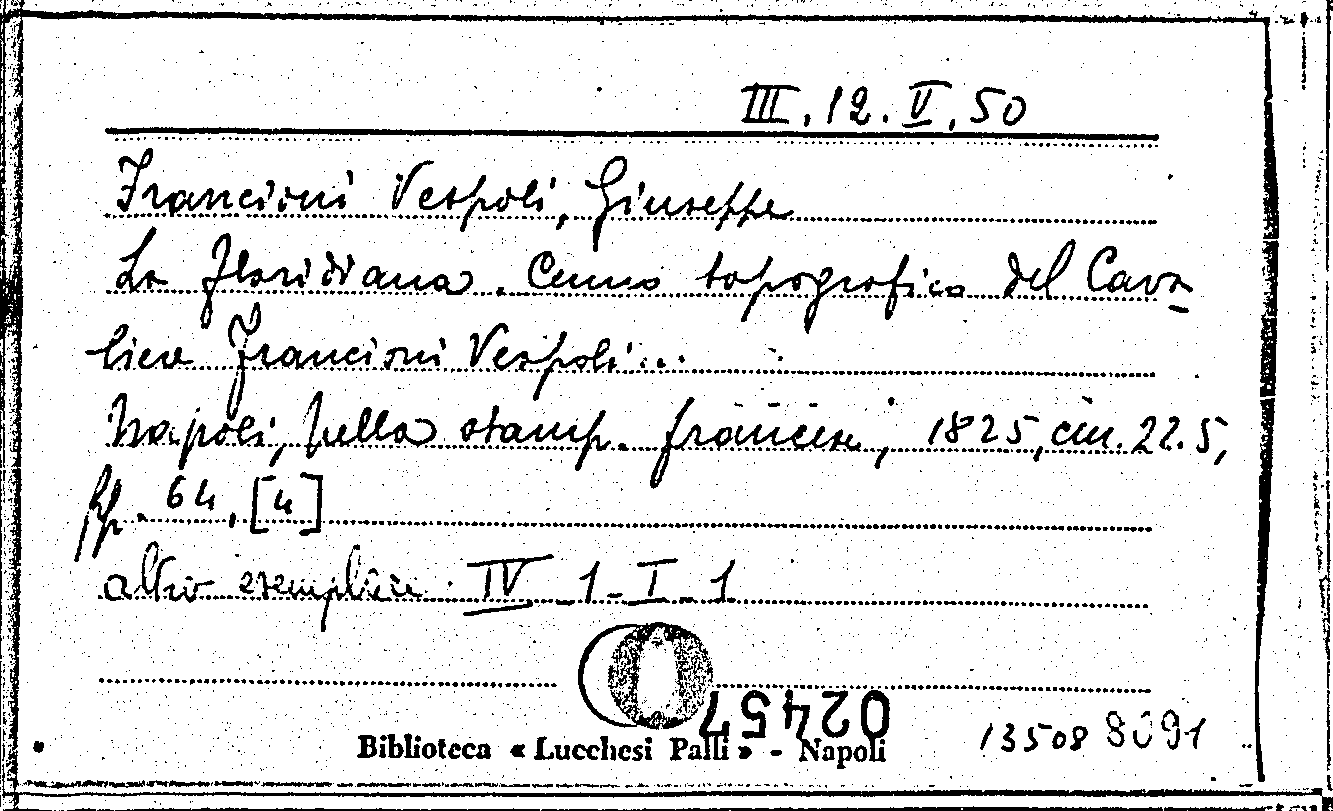 III.12.V.50
Francioni Vespoli, Giuseppe
La Floridiana. Cenno topografico del Cava-
liere Francioni Vespoli...
Napoli, nella stamp. francese, 1825, cm. 22.5,
pp. 64, [4]
altro esemplare: IV 1-I-1
02457
Biblioteca « Lucchesi Palli » - Napoli
13508 8091